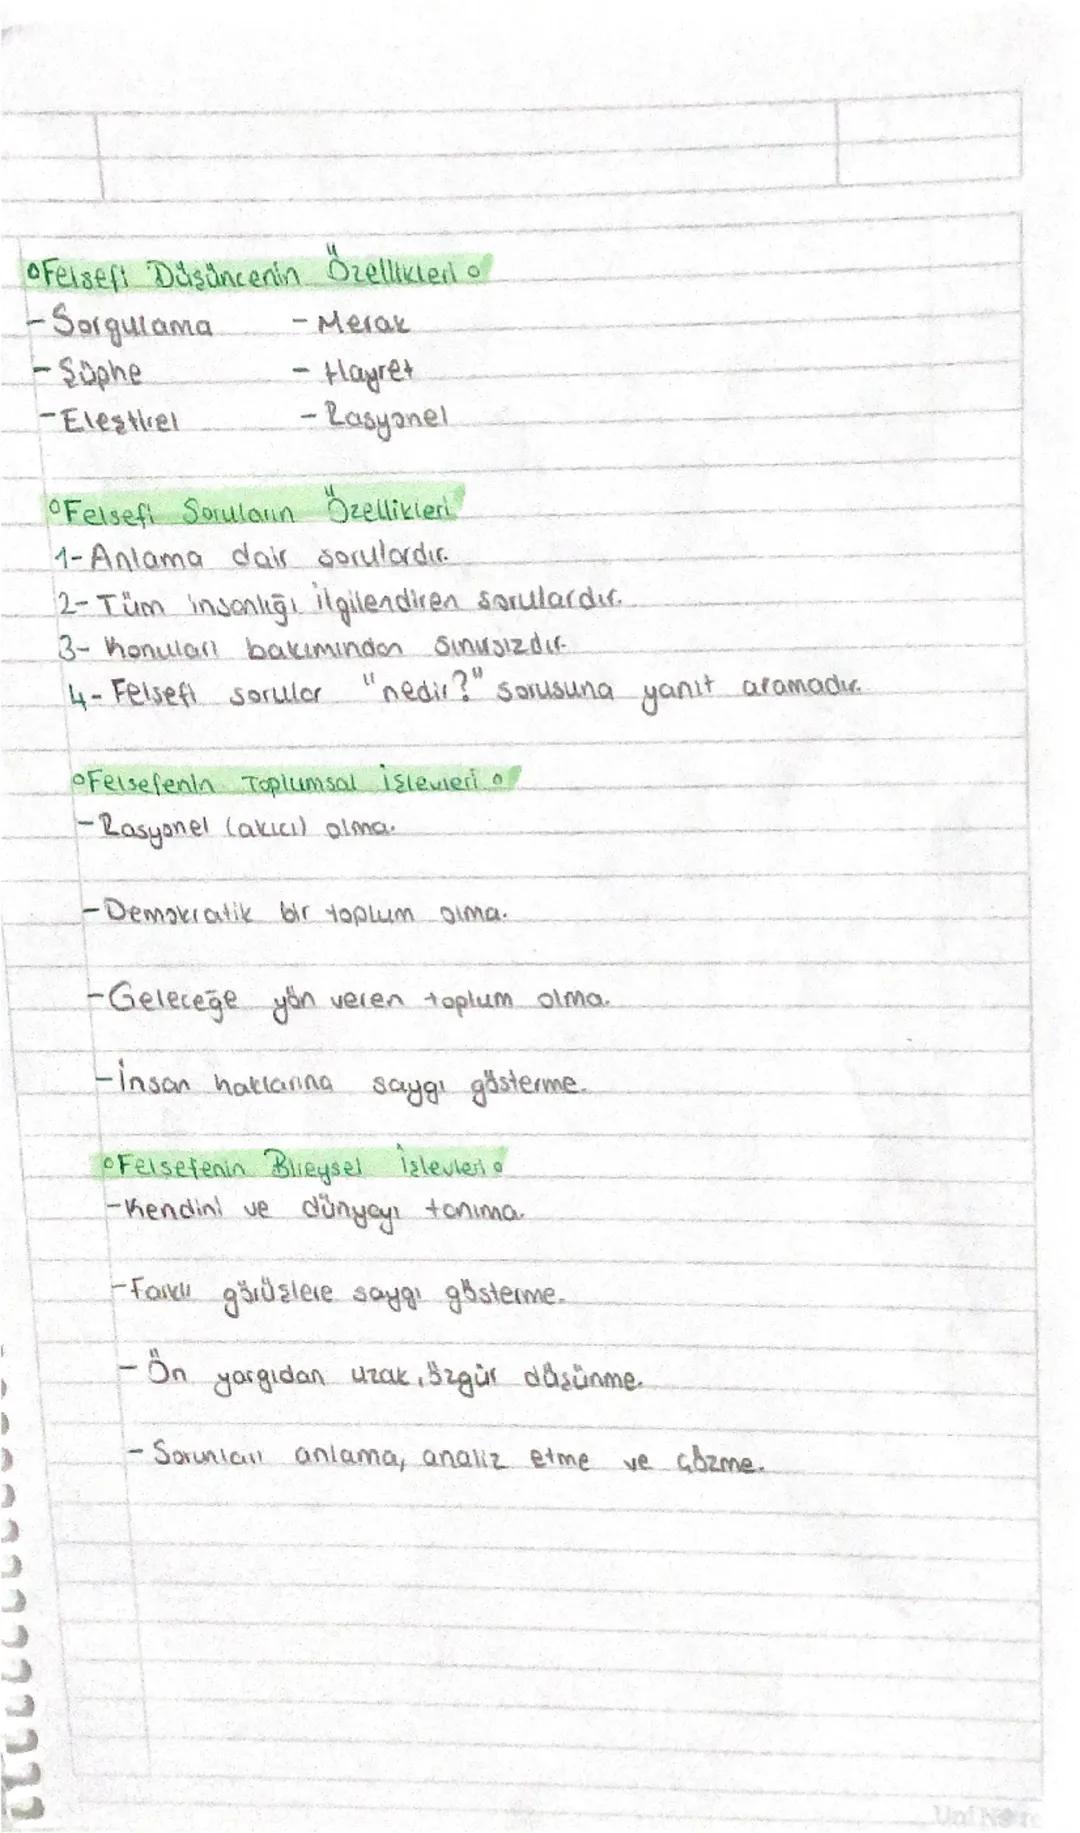 °Felsefi Düşüncenin Özellikleri°
- Sorgulama - Merak
- Şüphe - Hayret
- Eleştirel - Rasyonel
°Felsefi Soruların Özellikleri
1- Anlama dair sorulardır.
2- Tüm insanlığı ilgilendiren sorulardır.
3- Konuları bakımından sınırsızdır.
4- Felsefi sorular "nedir?" sorusuna yanıt aramadır.
°Felsefenin Toplumsal İşlevleri°
- Rasyonel (akıcı) olma.
- Demokratik bir toplum olma.
- Geleceğe yön veren toplum olma.
- İnsan haklarına saygı gösterme.
°Felsefenin Bireysel İşlevleri°
- Kendini ve dünyayı tanıma.
- Farklı görüşlere saygı gösterme.
- Ön yargıdan uzak, özgür düşünme.
- Sorunları anlama, analiz etme ve çözme.